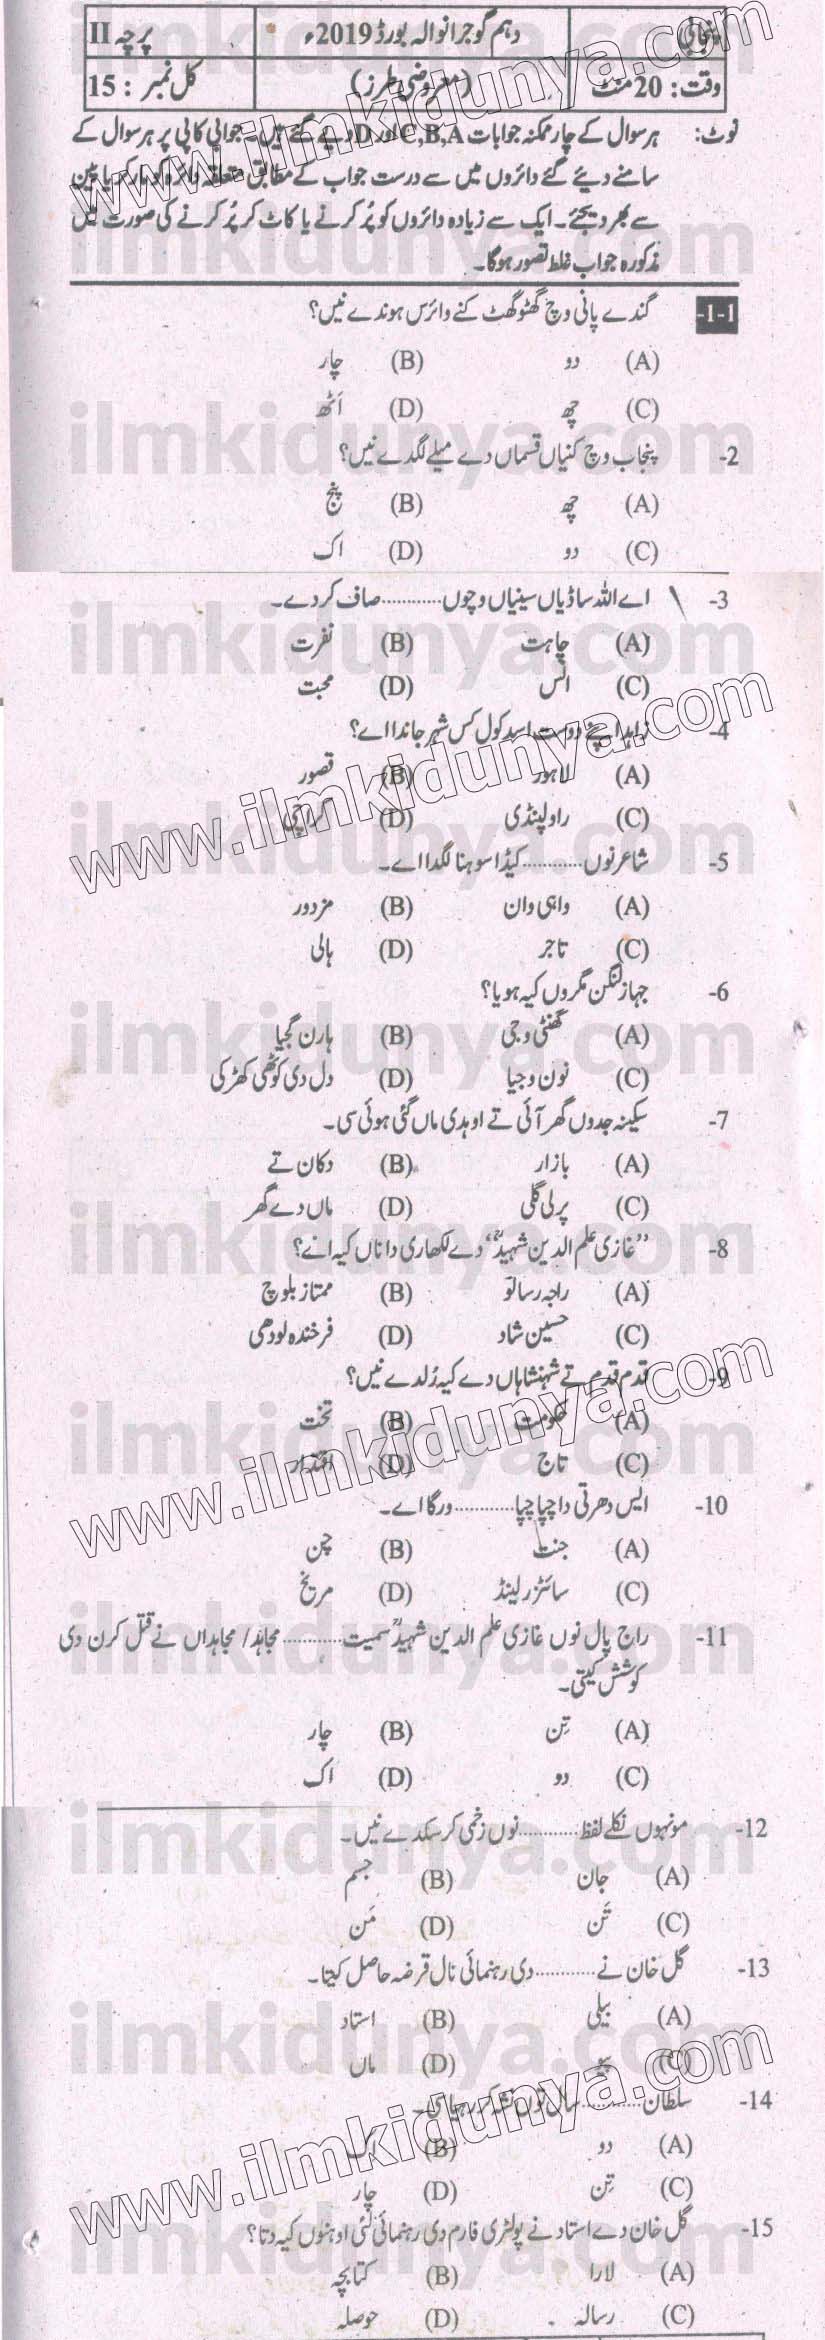 پنجابی دہم گوجرانوالہ بورڈ 2019ء پرچہ II
وقت: 20 منٹ (معروضی طرز) کل نمبر: 15
نوٹ: ہر سوال کے چار ممکنہ جوابات C,B,A اور D دیے گئے ہیں۔ جوابی کاپی پر ہر سوال کے
سامنے دیئے گئے دائروں میں سے درست جواب کے مطابق متعلقہ دائرہ کو مارکر یا پین
سے بھر دیجئے۔ ایک سے زیادہ دائروں کو پُر کرنے یا کاٹ کر پُر کرنے کی صورت میں
مذکورہ جواب غلط تصور ہوگا۔
1-1- گندے پانی وچ گھٹوگھٹ کنے وائرس ہوندے نیں؟
(A) دو (B) چار
(C) چھ (D) اَٹھ
2- پنجاب وچ کنیاں قسماں دے میلے لگدے نیں؟
(A) چھ (B) پنج
(C) دو (D) اک
3- اے اللہ ساڈیاں سینیاں وچوں ............ صاف کر دے۔
(A) چاہت (B) نفرت
(C) انس (D) محبت
4- زاہد اپنے دوست اسد کول کس شہر جاندا اے؟
(A) لاہور (B) قصور
(C) راولپنڈی (D) کراچی
5- شاعر نوں ............ کیڈا سوہنا لگدا اے۔
(A) واہی وان (B) مزدور
(C) تاجر (D) ہالی
6- جہاز لنگن مگروں کیہ ہویا؟
(A) گھنٹی وجی (B) ہارن گجیا
(C) نون وجیا (D) دل دی کوٹھی کھڑکی
7- سکینہ جدوں گھر آئی تے اوہدی ماں گئی ہوئی سی۔
(A) بازار (B) دکان تے
(C) پرلی گلی (D) ماں دے گھر
8- "غازی علم الدین شہیدؒ" دے لکھاری دا ناں کیہ اے؟
(A) راجہ رسالو (B) ممتاز بلوچ
(C) حسین شاد (D) فرخندہ لودھی
9- قدم قدم تے شہنشاہاں دے کیہ رُلدے نیں؟
(A) حکومت (B) تخت
(C) تاج (D) اقتدار
10- ایس دھرتی دا چپا چپا ............ ورگا اے۔
(A) جنت (B) چن
(C) سائزرلینڈ (D) مریخ
11- راج پال نوں غازی علم الدین شہیدؒ سمیت ............ مجاہد/ مجاہداں نے قتل کرن دی
کوشش کیتی۔
(A) تِن (B) چار
(C) دو (D) اک
12- مونہوں نکلے لفظ ............ نوں زخمی کر سکدے نیں۔
(A) جان (B) جسم
(C) تَن (D) مَن
13- گل خان نے ............ دی رہنمائی نال قرضہ حاصل کیتا۔
(A) بیلی (B) استاد
(C) پیو (D) ماں
14- سلطان ............ سال توں نشہ کر رہیا سی۔
(A) دو (B) اک
(C) تِن (D) چار
15- گل خان دے استاد نے پولٹری فارم دی رہنمائی لئی اوہنوں کیہ دتا؟
(A) لارا (B) کتابچہ
(C) رسالہ (D) حوصلہ
ilmkidunya.com
www.ilmkidunya.com